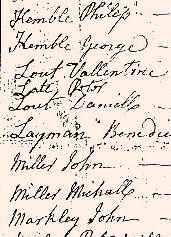 Kemble Philip
Kemble George
Lout Vallentine
Late Peter
Lout Daniell
Layman Benedic
Miller John
Miller Michall
Markley John